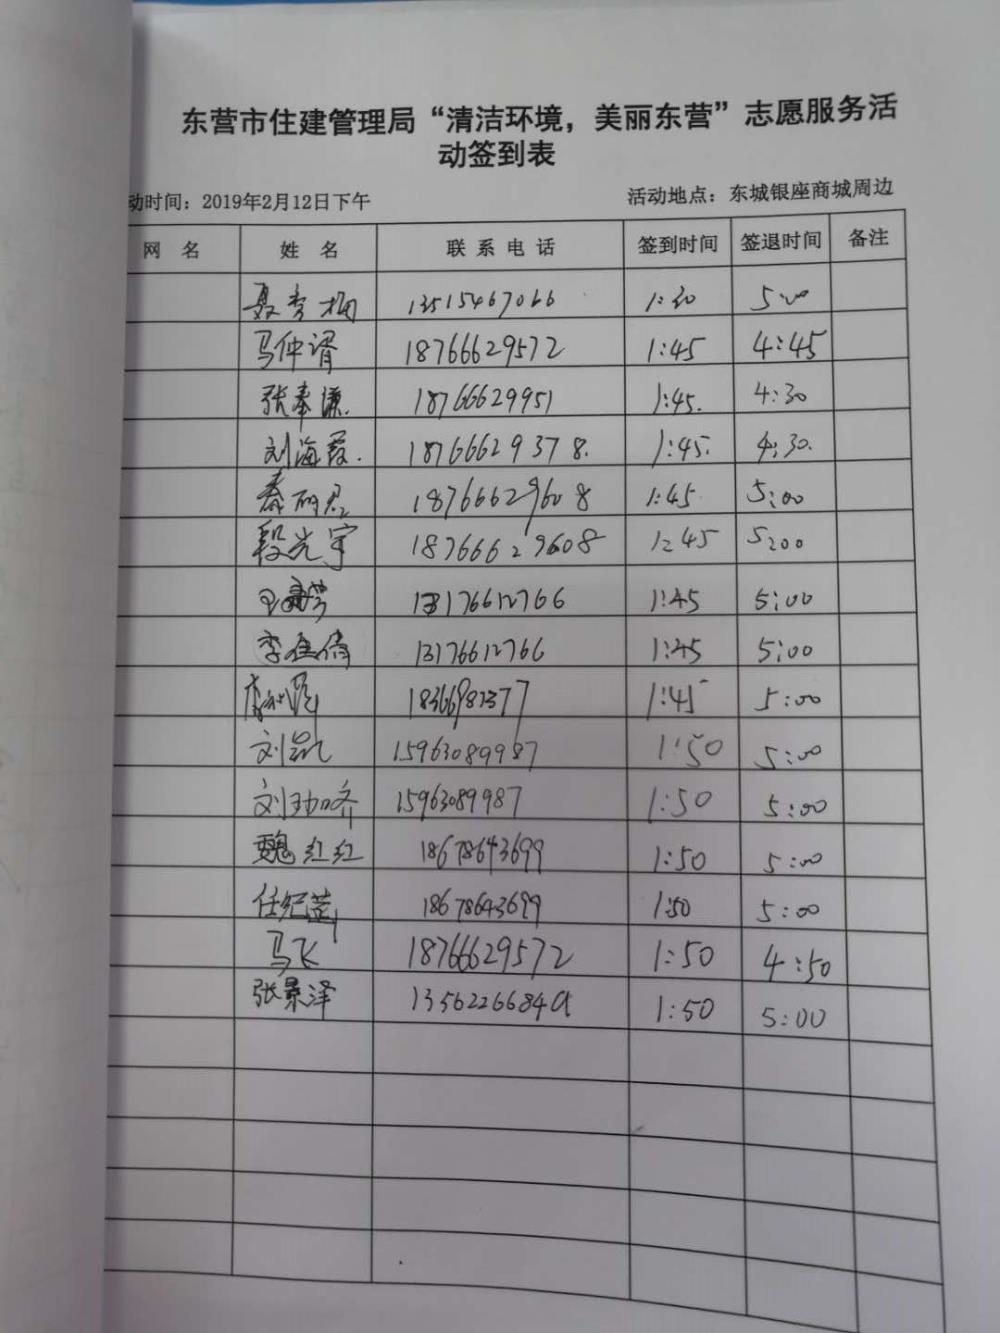 东营市住建管理局“清洁环境，美丽东营”志愿服务活
动签到表
动时间：2019年2月12日下午 活动地点：东城银座商城周边
网 名 姓 名 联系电话 签到时间 签退时间 备注
聂秀梅 13515467066 1:30 5:00
马仲谞 18766629572 1:45 4:45
张奉谦. 18766629951 1:45. 4:30
刘海霞. 18766629378. 1:45. 4:30.
秦丽君 18766629608 1:45 5:00
段光宇 18766629608 1:45 5:00
王 13176612766 1:45 5:00
李佳倩 13176612766 1:45 5:00
18366981377 1:45 5:00
刘凯 15963089987 1:50 5:00
刘劲 15963089987 1:50 5:00
魏红红 18678643699 1:50 5:00
任纪莲 18678643699 1:50 5:00
马飞 18766629572 1:50 4:50
张景泽 1356226684 1:50 5:00